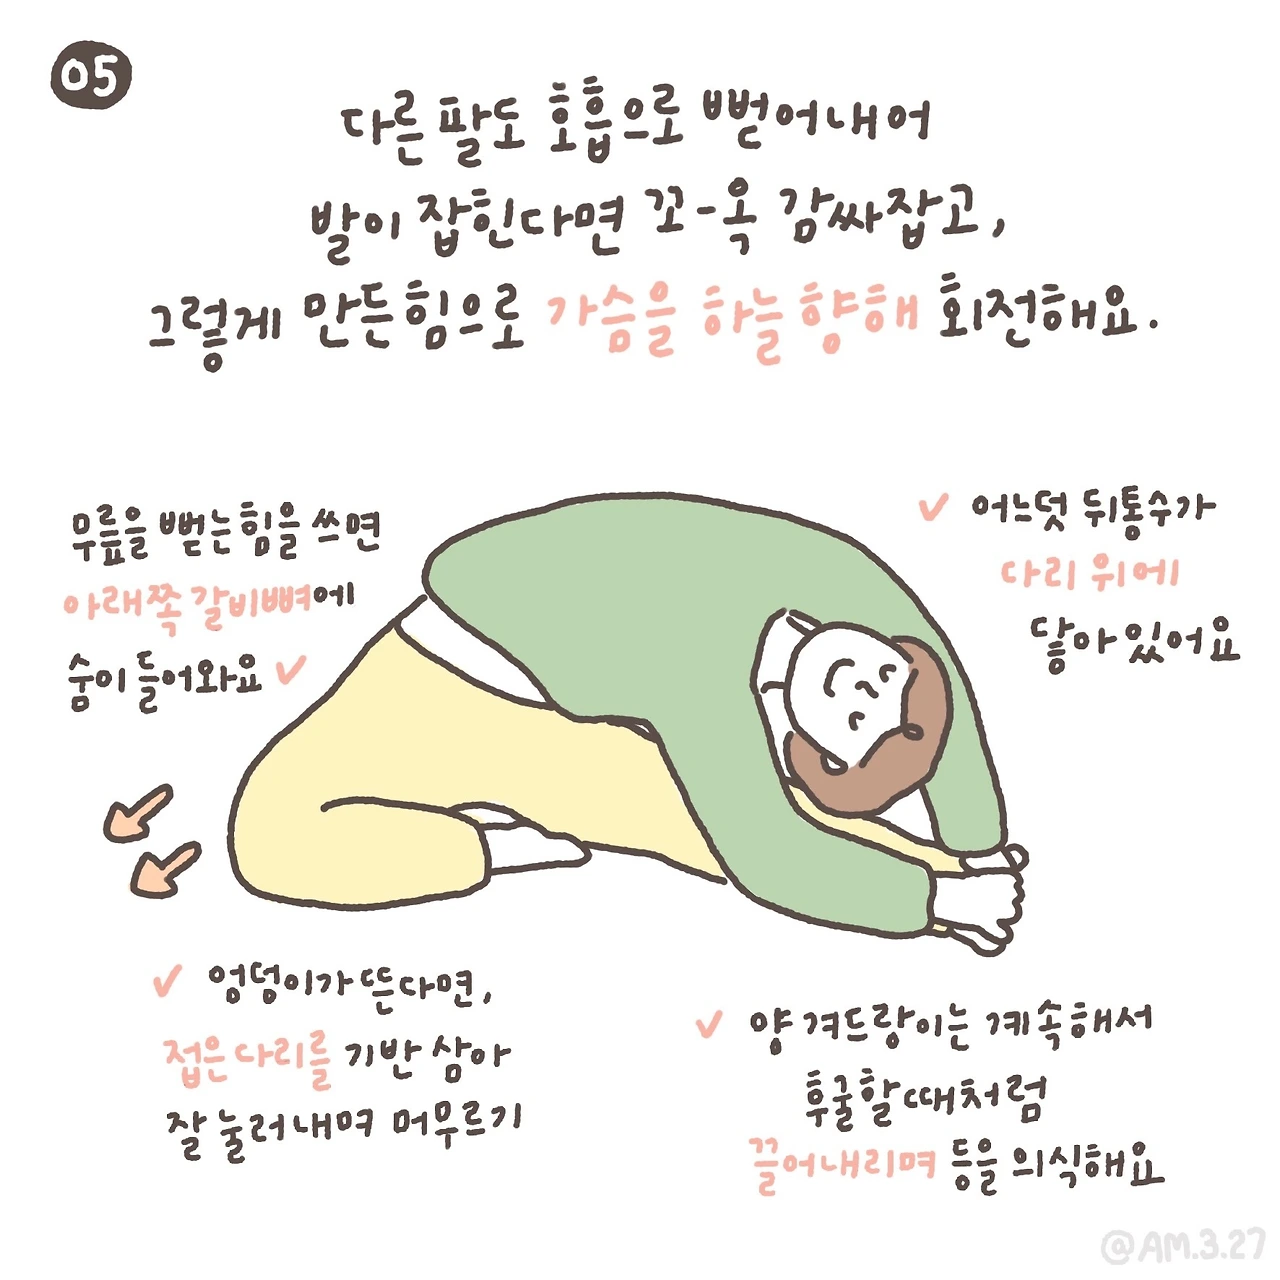 05
다른 팔도 호흡으로 뻗어내어
발이 잡힌다면 꼬-옥 감싸잡고,
그렇게 만든 힘으로 가슴을 하늘 향해 회전해요.
무릎을 뻗는 힘을 쓰면
아래쪽 갈비뼈에
숨이 들어와요 ✓
✓ 어느덧 뒤통수가
다리 위에
닿아 있어요
✓ 엉덩이가 뜬다면,
접은 다리를 기반 삼아
잘 눌러내며 머무르기
✓ 양 겨드랑이는 계속해서
후굴할 때처럼
끌어내리며 등을 의식해요
@AM.3.27